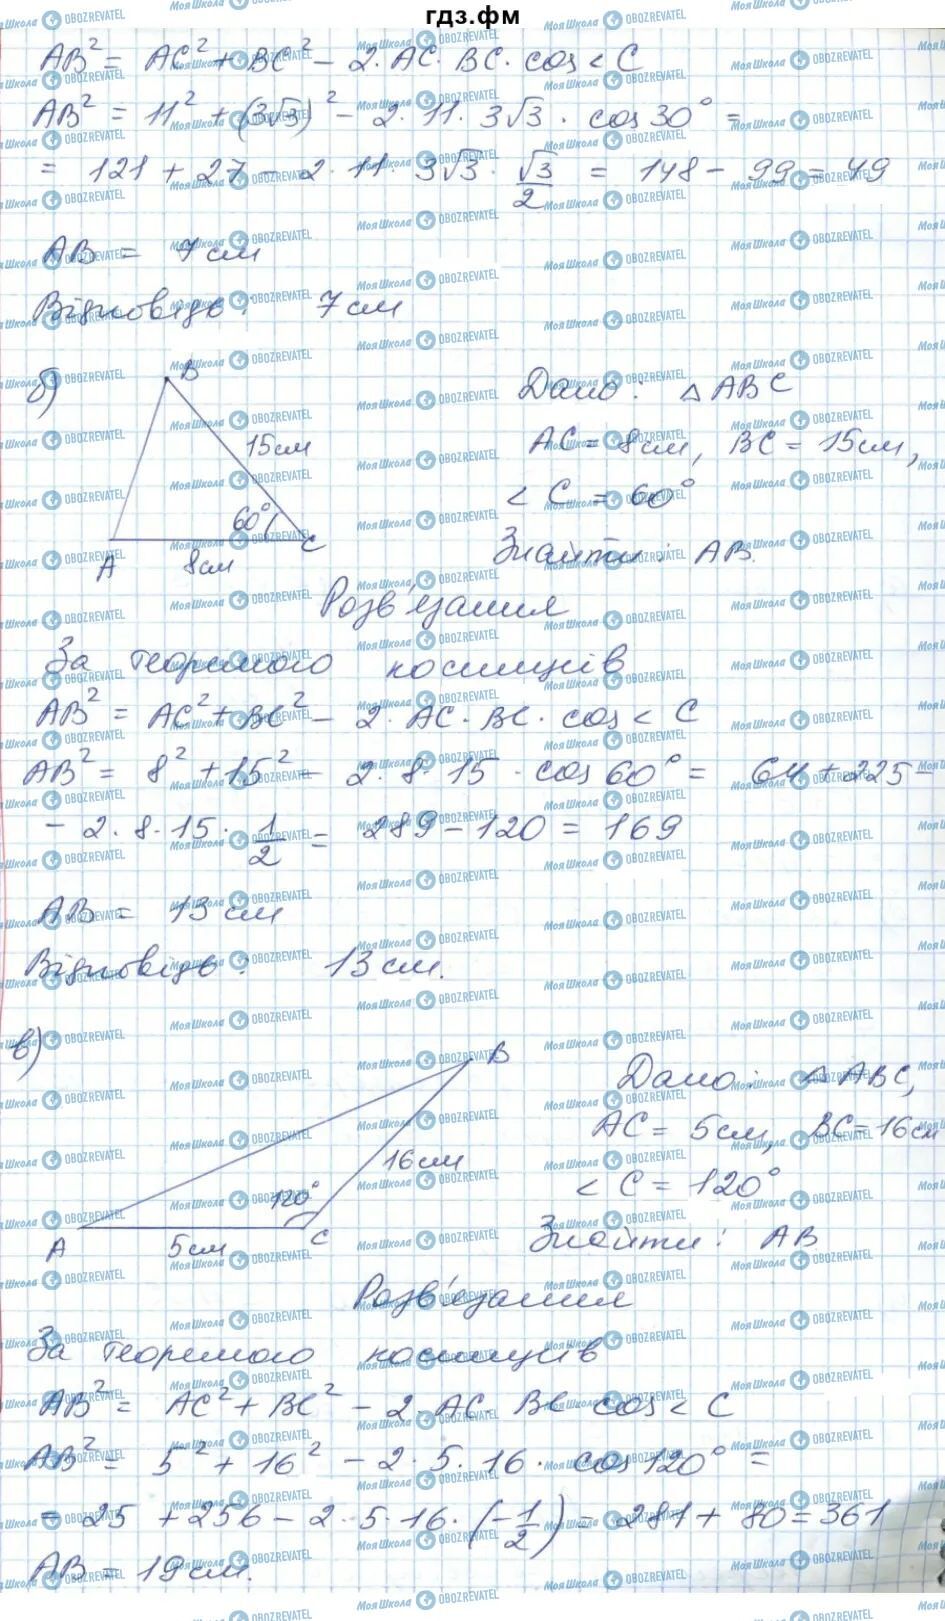 гдз.фм
AB² = AC² + BC² - 2·AC·BC·cos<C
AB² = 11² + (3√3)² - 2·11·3√3·cos30° =
= 121 + 27 - 2·11·3√3·√3/2 = 148 - 99 = 49
AB = 7см
Відповідь: 7см
б)
B
15см
60°
A
8см
C
Дано: △ABC
AC = 8см, BC = 15см,
<C = 60°
Знайти: AB.
Розв'язання
За теоремою косинусів
AB² = AC² + BC² - 2·AC·BC·cos<C
AB² = 8² + 15² - 2·8·15·cos60° = 64 + 225 -
- 2·8·15·1/2 = 289 - 120 = 169
AB = 13см
Відповідь: 13см.
в)
B
16см
120°
A
5см
C
Дано: △ABC,
AC = 5см, BC = 16см
<C = 120°
Знайти: AB
Розв'язання
За теоремою косинусів
AB² = AC² + BC² - 2·AC·BC·cos<C
AB² = 5² + 16² - 2·5·16·cos120° =
= 25 + 256 - 2·5·16·(-1/2) = 281 + 80 = 361
AB = 19см.
Моя Школа OBOZREVATEL